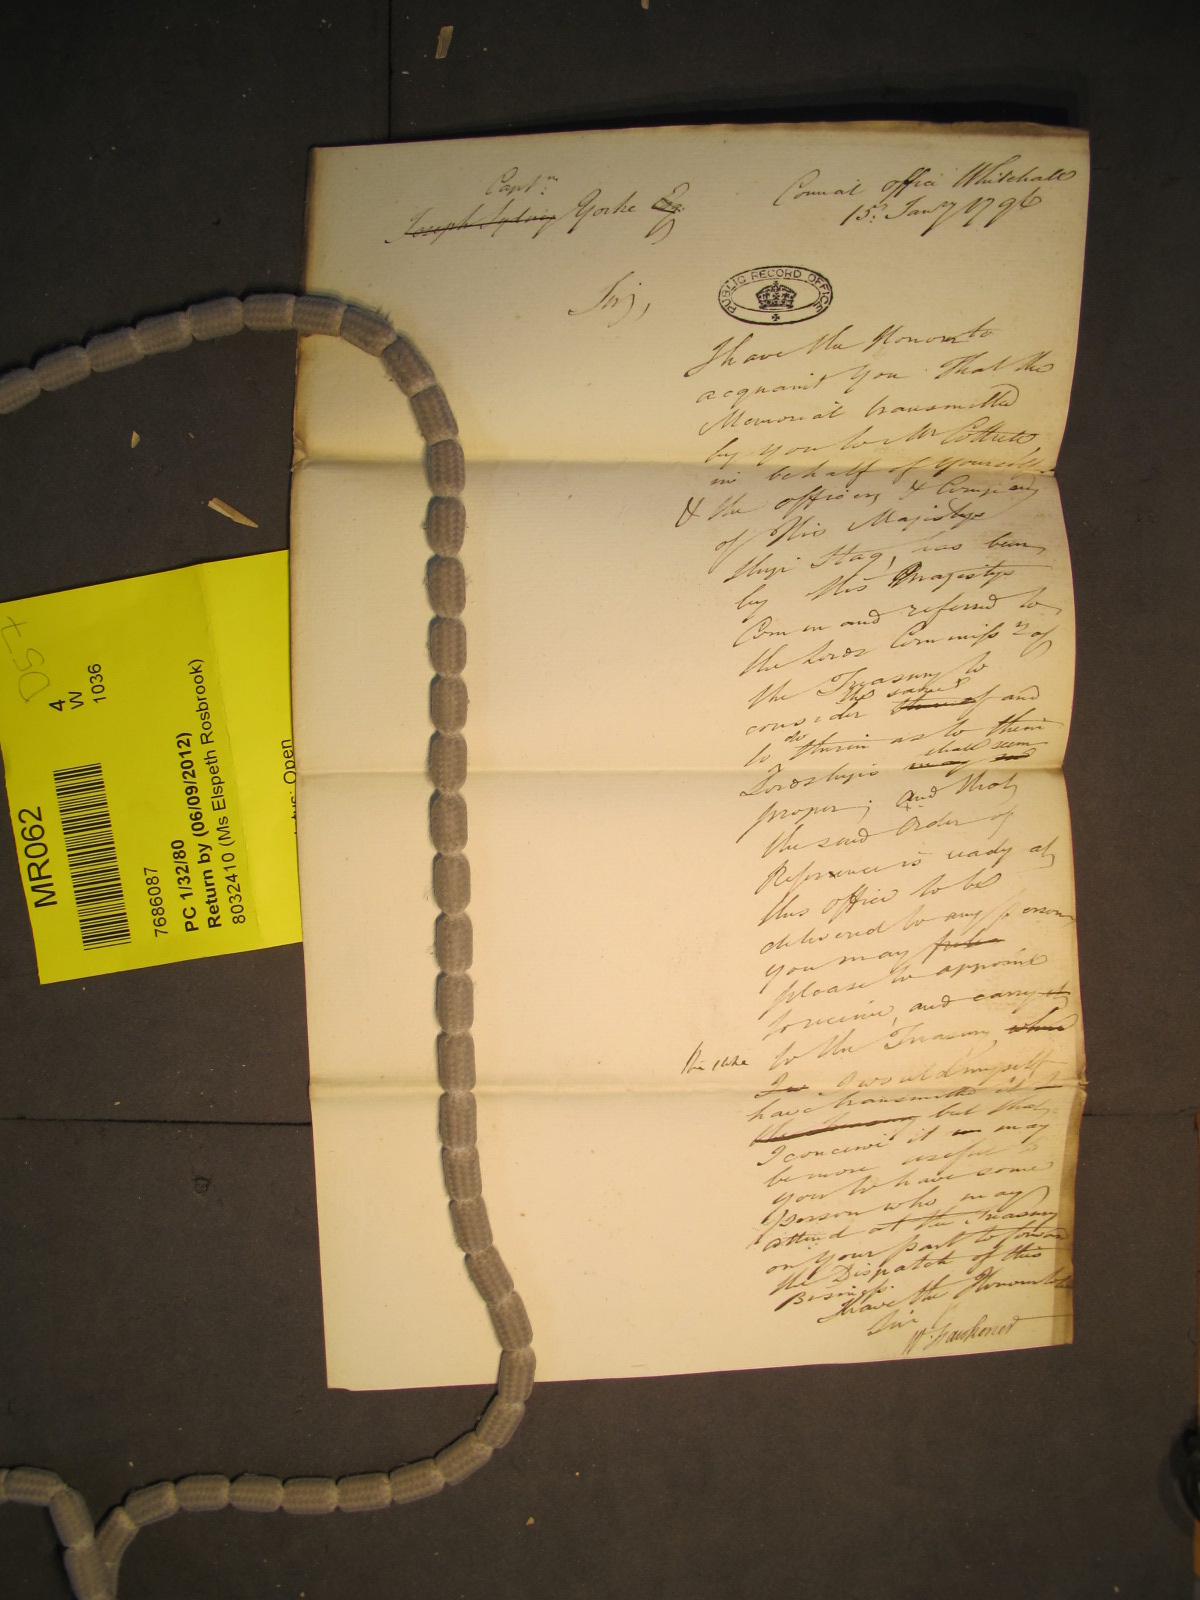 Capt.n
Joseph Sydney Yorke Esq.
Council Office Whitehall
15.th Jan.ry 1796
Sir,
PUBLIC RECORD OFFICE
I have the Honour to
acquaint You That the
Memorial transmitted
by you to Mr Cottrell,
in behalf of yourself
& the officers & Company
of His Majestys
Ship Stag, has been,
by His Majestys
Command referred to
the Lords Commiss.rs of
the Treasury to
the same &
consider thereof and
do
to therein as to their
shall seem
Lordships may
proper; and that
the said Order of
Reference is ready at
this office to be
delivered to any person
you may
please to appoint
to receive, and carry it
the same to the Treasury, which
I would myself
have transmitted it
the Treasury but that
I conceive it may
be more useful to
you to have some
person who may
attend at the Treasury
on your part to forward
the Dispatch of this
Business.
I have the Honour to be
Sir
W. Fawkener
D57
MR062
4
W
1036
7686087
PC 1/32/80
Return by (06/09/2012)
8032410 (Ms Elspeth Rosbrook)
Open